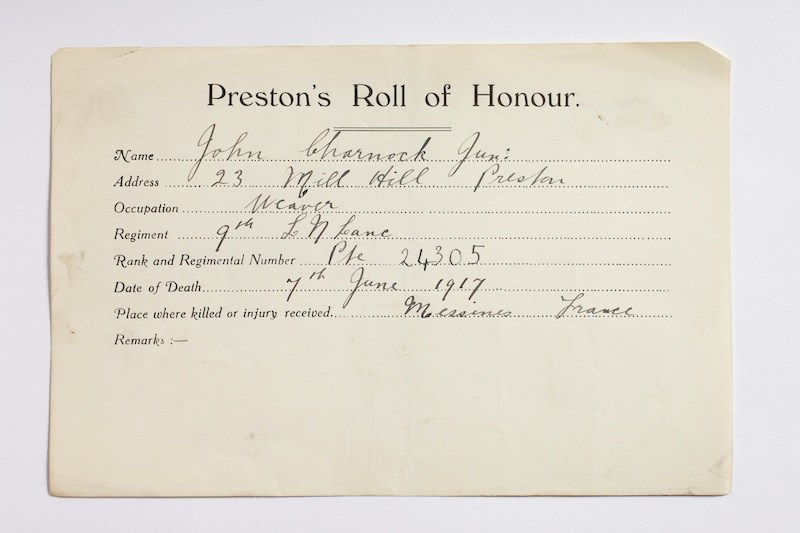 Preston's Roll of Honour.
Name John Charnock Jun:
Address 23 Mill Hill Preston
Occupation Weaver
Regiment 9th L N Lanc
Rank and Regimental Number Pte 24305
Date of Death 7th June 1917
Place where killed or injury received Messines France
Remarks :—